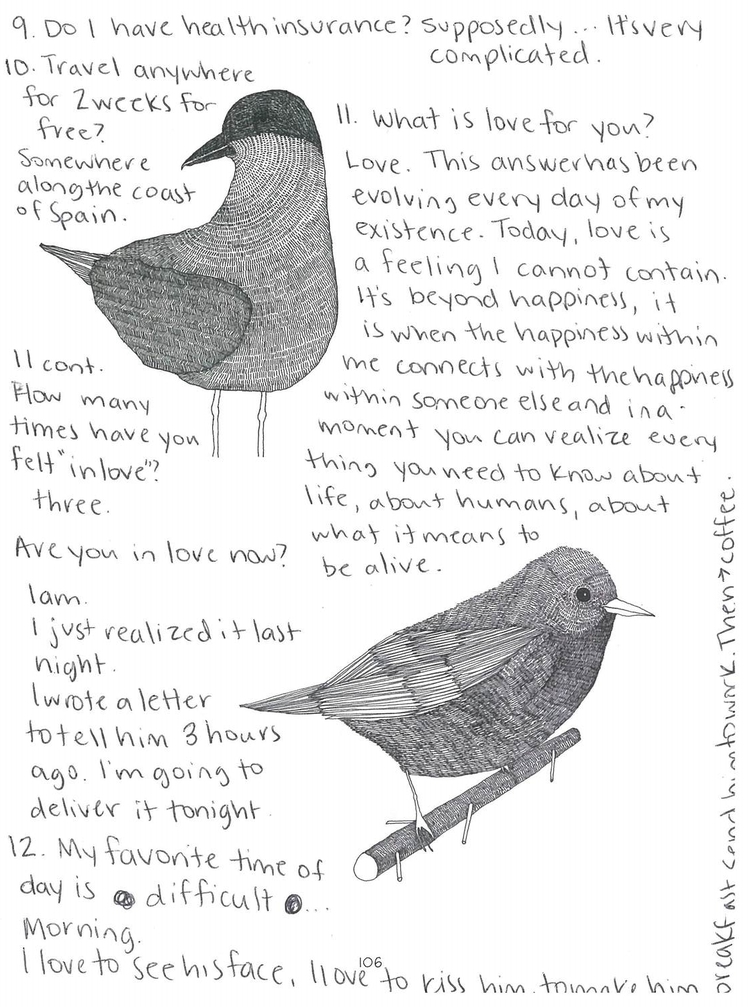 9. Do I have health insurance? Supposedly... It's very
complicated.
10. Travel anywhere
for 2 weeks for
free?
Somewhere
along the coast
of Spain.
11. What is love for you?
Love. This answer has been
evolving every day of my
existence. Today, love is
a feeling I cannot contain.
It's beyond happiness, it
is when the happiness within
me connects with the happiness
within someone else and in a
moment you can realize every
thing you need to know about
life, about humans, about
what it means to
be alive.
11 cont.
How many
times have you
felt "in love"?
three.
Are you in love now?
I am.
I just realized it last
night.
I wrote a letter
to tell him 3 hours
ago. I'm going to
deliver it tonight.
12. My favorite time of
day is difficult ...
Morning.
I love to see his face, I love to kiss him, to make him
breakfast send him to work. Then → coffee.
106